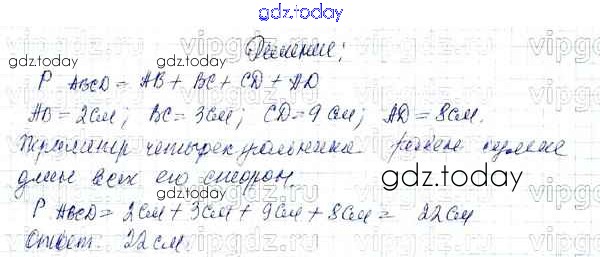 gdz.today
Решение:
P ABCD = AB + BC + CD + AD
AB = 2см; BC = 3см; CD = 9 см; AD = 8см.
Периметр четырехугольника равен сумме
длин всех его сторон.
gdz.today
gdz.today
P ABCD = 2см + 3см + 9см + 8см = 22см
Ответ: 22 см.